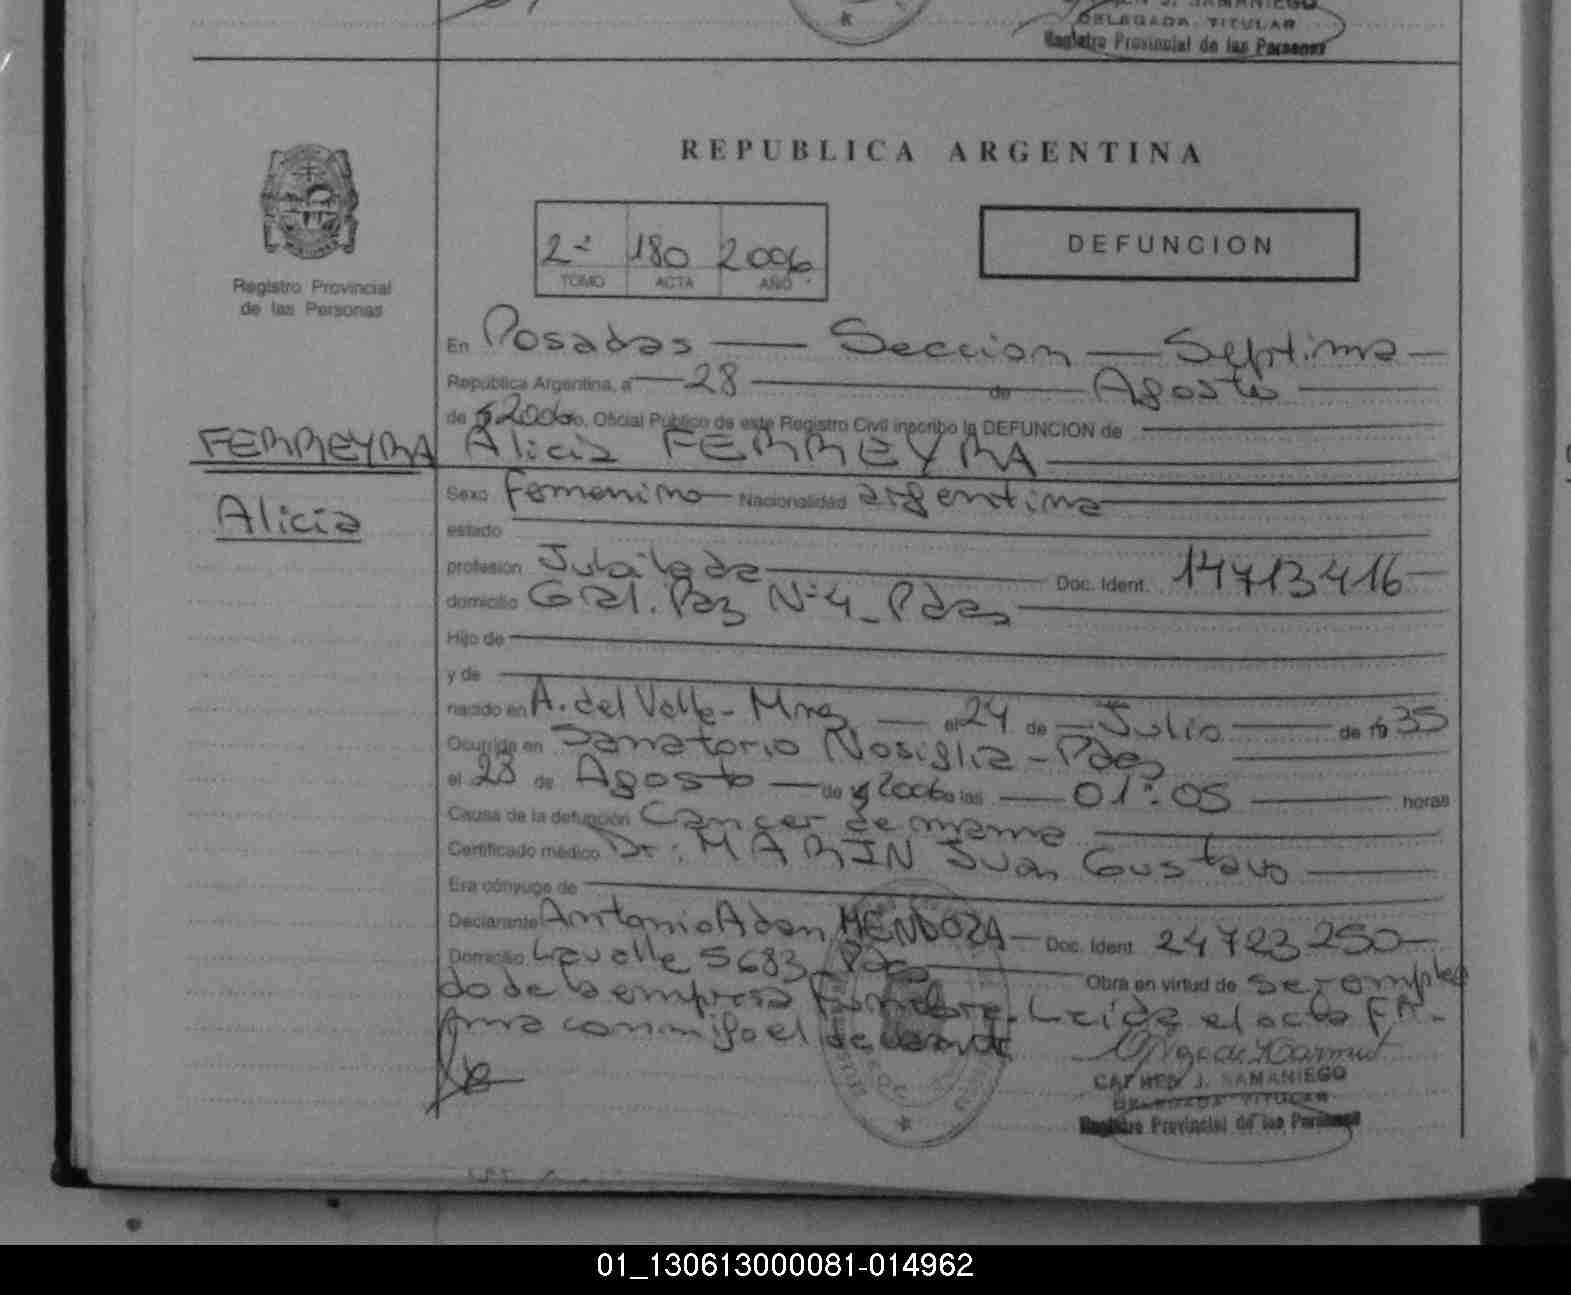 J. SAMANIEGO
DELEGADA TITULAR
Registro Provincial de las Personas
REPUBLICA ARGENTINA
2º 180 2006
TOMO ACTA AÑO
DEFUNCION
Registro Provincial
de las Personas
En Posadas Seccion Septima
República Argentina, a 28 de Agosto
de 2006 Oficial Público de este Registro Civil inscribo la DEFUNCION de
FERREYRA Alicia FERREYRA
Alicia
Sexo femenino Nacionalidad argentina
estado
profesión Jubilada Doc. Ident. 14713416
domicilio Gral. Paz Nº 4 - Pdas
Hijo de
y de
nacido en A. del Valle - Mnes el 24 de Julio de 19 35
Ocurrida en Sanatorio Nosiglia - Pdas
el 28 de Agosto de 2006 a las 01:05 horas
Causa de la defunción Cancer de mama
Certificado médico Dr. MARIN Juan Gustavo
Era cónyuge de
Declarante Antonio Adan MENDOZA Doc. Ident. 24723250
Domicilio Lavalle 5683 Pdas Obra en virtud de ser emplea
do de la empresa funebre. Leida el acta fir-
ma conmigo el declarante
J. SAMANIEGO
DELEGADA TITULAR
Registro Provincial de las Personas
01_130613000081-014962